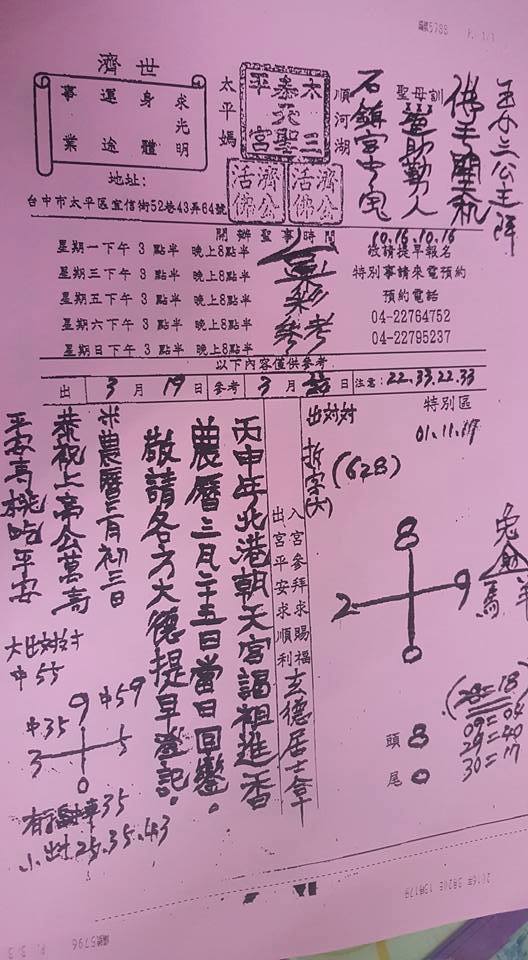 編號5788 P. 1/1
玉亦三公主降
佛手開天机
聖母訓
石鎮宮中鬼
濟世
求光明
身體
運途
事業
太平媽
順河湖
六三
泰天聖
平宮
濟公
活佛
濟公
活佛
地址:
台中市太平區宜信街52巷43弄64號
開辦聖事時間
10.16.10.16
星期一下午 3 點半 晚上8點半
敬請提早報名
星期三下午 3 點半 晚上8點半
特別事請來電預約
星期五下午 3 點半 晚上8點半
預約電話
星期六下午 3 點半 晚上8點半
04-22764752
星期日下午 3 點半 晚上8點半
04-22795237
參考
以下內容僅供參考
出 3 月 19 日 參考 3 月 日 注意: 22.33.22.33
特別區
01.11.17
出対対
拆字(大)
(628)
8
2 9
0
兔
馬 羊
(28=18)
09=04
29=40
30=17
頭 8
尾 0
入宮參拜求賜福
出宮平安求順利
玄德居士拿
丙申年北港朝天宮謁祖進香
農曆二月二十五日當日回鑾。
敬請各方大德提早登記。
農曆三月初三日
恭祝上帝公萬壽
平安壽桃吃平安
大出対対
中55
9
中35 中59
3 5
0
35
小出対25.35.43
2016年 3月20日 10時17分
編號5796 P. 3/3